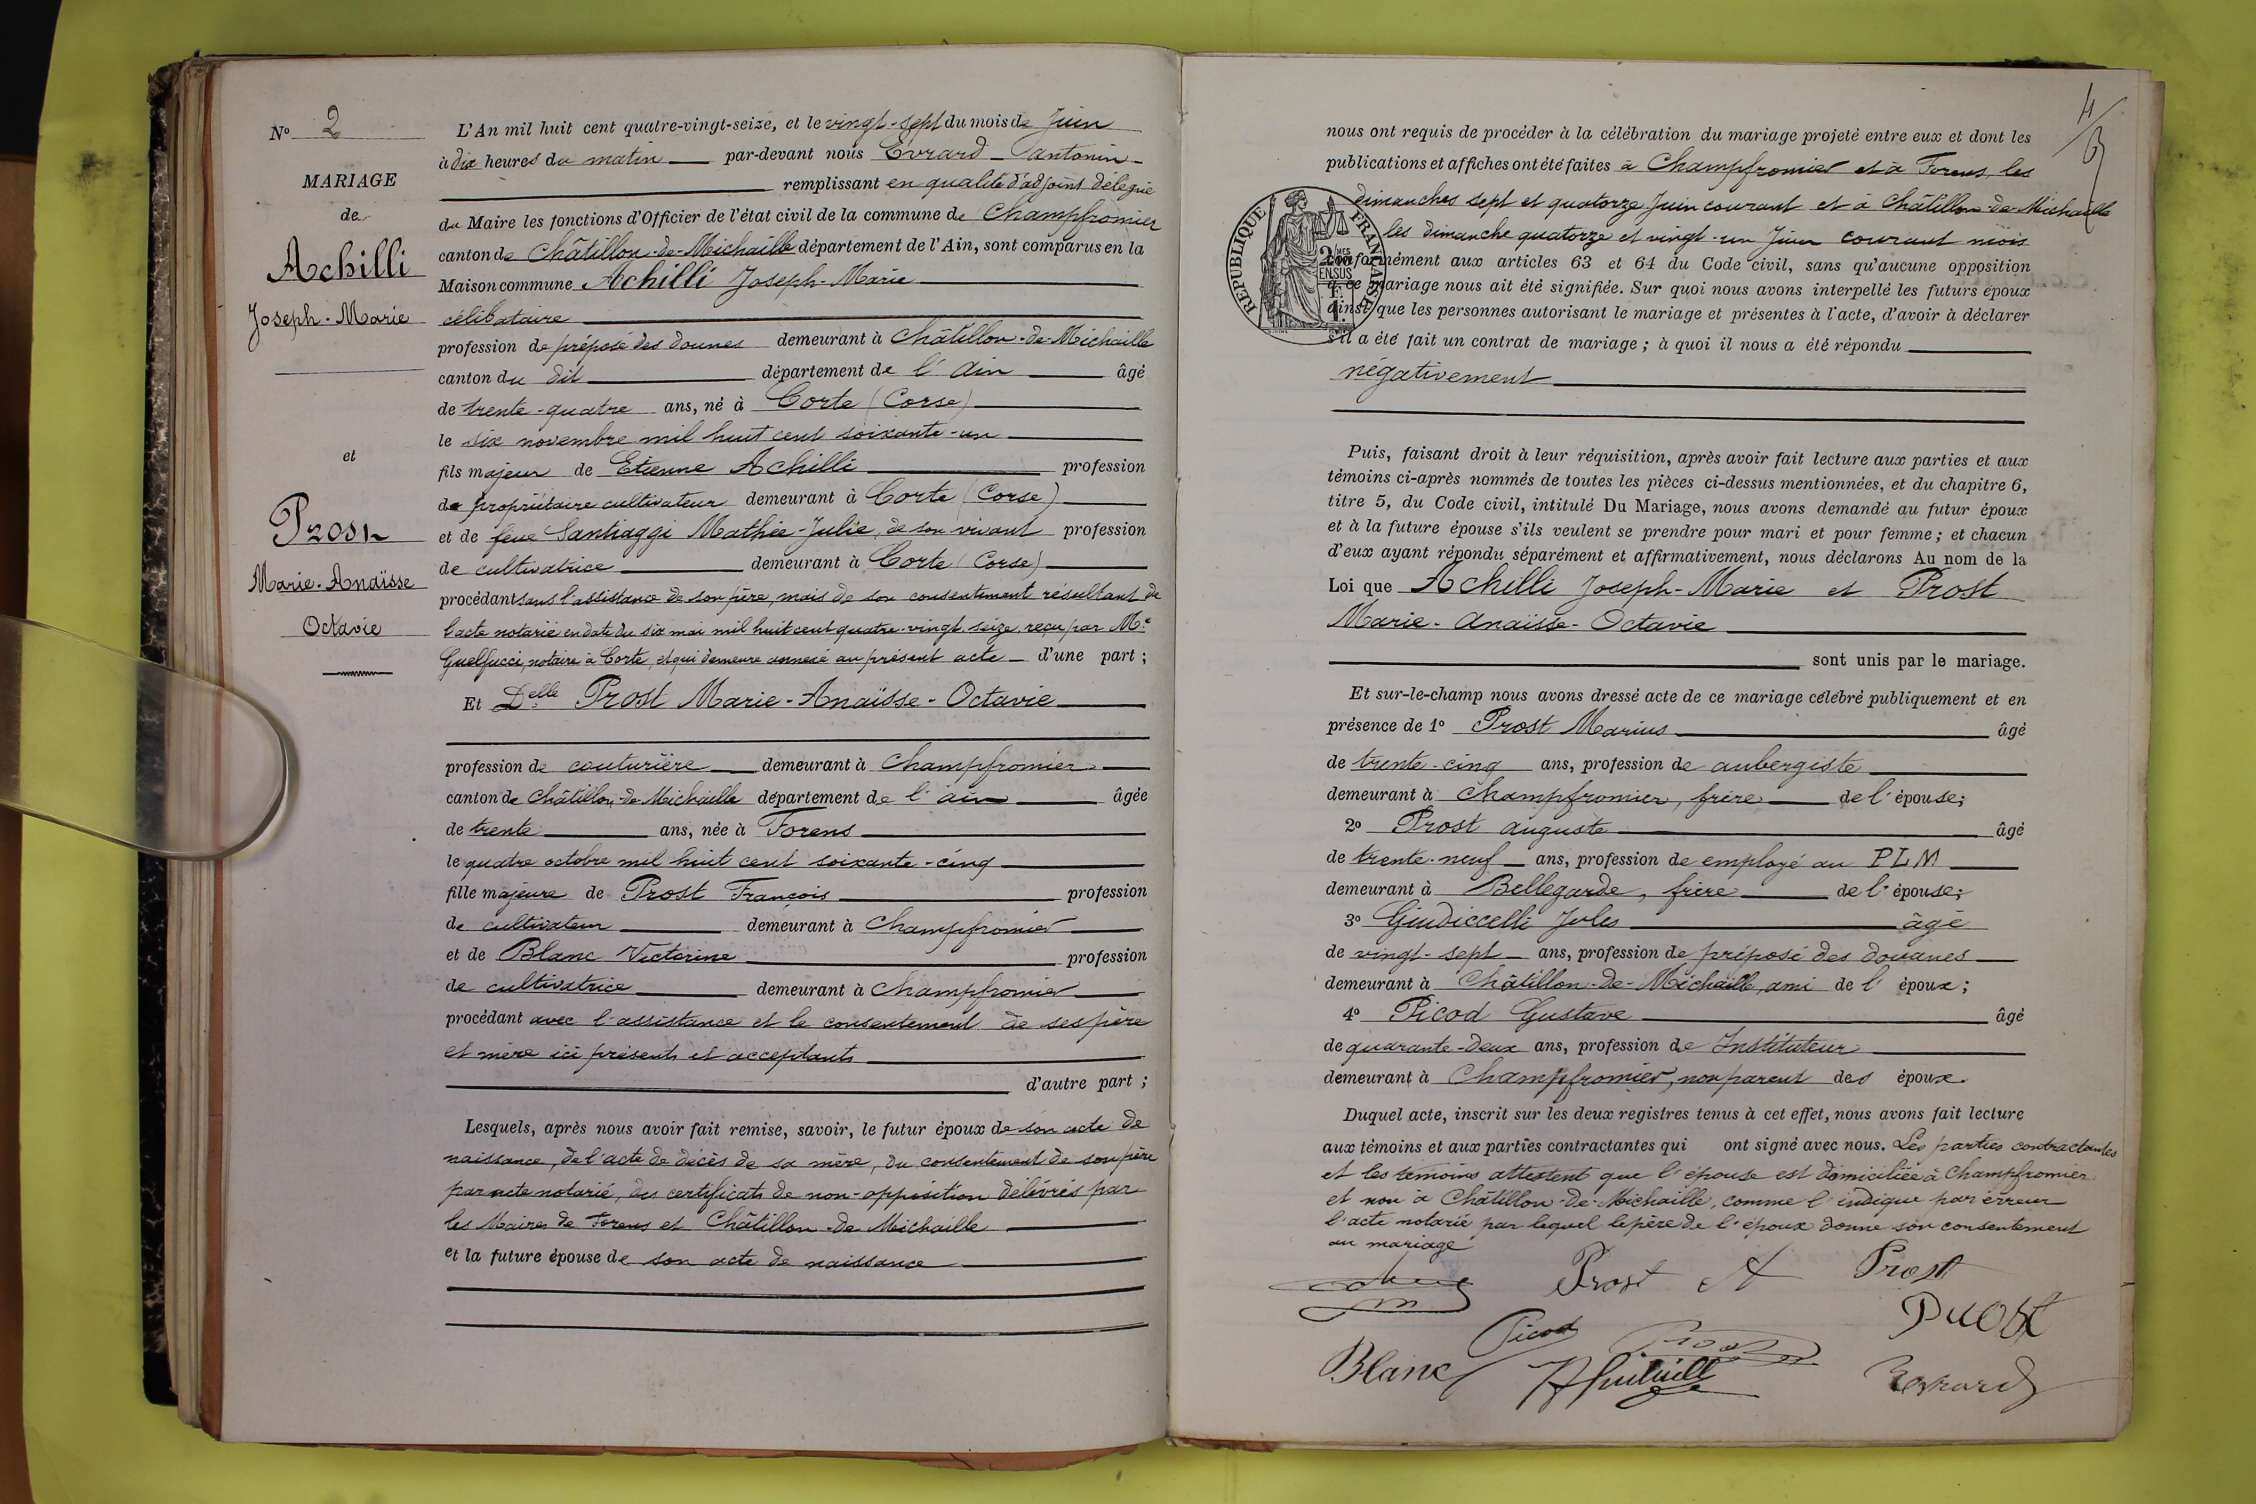 N° 2
MARIAGE
de
Achilli
Joseph-Marie
et
Prost
Marie-Anaïsse
Octavie
L'An mil huit cent quatre-vingt-seize, et le vingt-sept du mois de Juin
à dix heures du matin par-devant nous Evrard Antonin
remplissant en qualité d'adjoint délégué
du Maire les fonctions d'Officier de l'état civil de la commune de Champfromier
canton de Châtillon-de-Michaille département de l'Ain, sont comparus en la
Maison commune Achilli Joseph-Marie
célibataire
profession de préposé des dounes demeurant à Châtillon-de-Michaille
canton du dit département de l'Ain âgé
de trente-quatre ans, né à Corte (Corse)
le six novembre mil huit cent soixante-un
fils majeur de Etienne Achilli profession
de propriétaire cultivateur demeurant à Corte (Corse)
et de feue Santiaggi Mathée-Julie, de son vivant profession
de cultivatrice demeurant à Corte (Corse)
procédant sans l'assistance de son père, mais de son consentement résultant de
l'acte notarié en date du six mai mil huit cent quatre-vingt-seize, reçu par Me
Guelfucci, notaire à Corte, et qui demeure annexé au présent acte d'une part ;
Et Delle Prost Marie-Anaïsse-Octavie
profession de couturière demeurant à Champfromier
canton de Châtillon-de-Michaille département de l'ain âgée
de trente ans, née à Forens
le quatre octobre mil huit cent soixante-cinq
fille majeure de Prost François profession
de cultivateur demeurant à Champfromier
et de Blanc Victorine profession
de cultivatrice demeurant à Champfromier
procédant avec l'assistance et le consentement de ses père
et mère ici présents et acceptants
d'autre part ;
Lesquels, après nous avoir fait remise, savoir, le futur époux de son acte de
naissance, de l'acte de décès de sa mère, du consentement de son père
par acte notarié, des certificats de non-opposition délivrés par
les Maires de Forens et Châtillon-de-Michaille
et la future épouse de son acte de naissance
4
nous ont requis de procéder à la célébration du mariage projeté entre eux et dont les
publications et affiches ont été faites à Champfromier et à Forens, les
dimanches sept et quatorze Juin courant et à Châtillon-de-Michaille
les dimanche quatorze et vingt-un Juin courant mois
conformément aux articles 63 et 64 du Code civil, sans qu'aucune opposition
à ce mariage nous ait été signifiée. Sur quoi nous avons interpellé les futurs époux
ainsi que les personnes autorisant le mariage et présentes à l'acte, d'avoir à déclarer
s'il a été fait un contrat de mariage ; à quoi il nous a été répondu
négativement
RÉPUBLIQUE FRANÇAISE
Puis, faisant droit à leur réquisition, après avoir fait lecture aux parties et aux
témoins ci-après nommés de toutes les pièces ci-dessus mentionnées, et du chapitre 6,
titre 5, du Code civil, intitulé Du Mariage, nous avons demandé au futur époux
et à la future épouse s'ils veulent se prendre pour mari et pour femme ; et chacun
d'eux ayant répondu séparément et affirmativement, nous déclarons Au nom de la
Loi que Achilli Joseph-Marie et Prost
Marie-Anaïsse-Octavie
sont unis par le mariage.
Et sur-le-champ nous avons dressé acte de ce mariage célébré publiquement et en
présence de 1° Prost Marius âgé
de trente-cinq ans, profession de aubergiste
demeurant à Champfromier, frère de l'épouse;
2° Prost auguste âgé
de trente-neuf ans, profession de employé au PLM
demeurant à Bellegarde, frère de l'épouse;
3° Giudiccelli Jules âgé
de vingt-sept ans, profession de préposé des douanes
demeurant à Châtillon-de-Michaille, ami de l'époux;
4° Picod Gustave âgé
de quarante-deux ans, profession de Instituteur
demeurant à Champfromier, non parent des époux.
Duquel acte, inscrit sur les deux registres tenus à cet effet, nous avons fait lecture
aux témoins et aux parties contractantes qui ont signé avec nous. Les parties contractantes
et les témoins attestent que l'épouse est domiciliée à Champfromier
et non à Châtillon-de-Michaille, comme l'indique par erreur
l'acte notarié par lequel le père de l'époux donne son consentement
au mariage
Prost A Prost
Prost
Picod
Blanc
Evrard